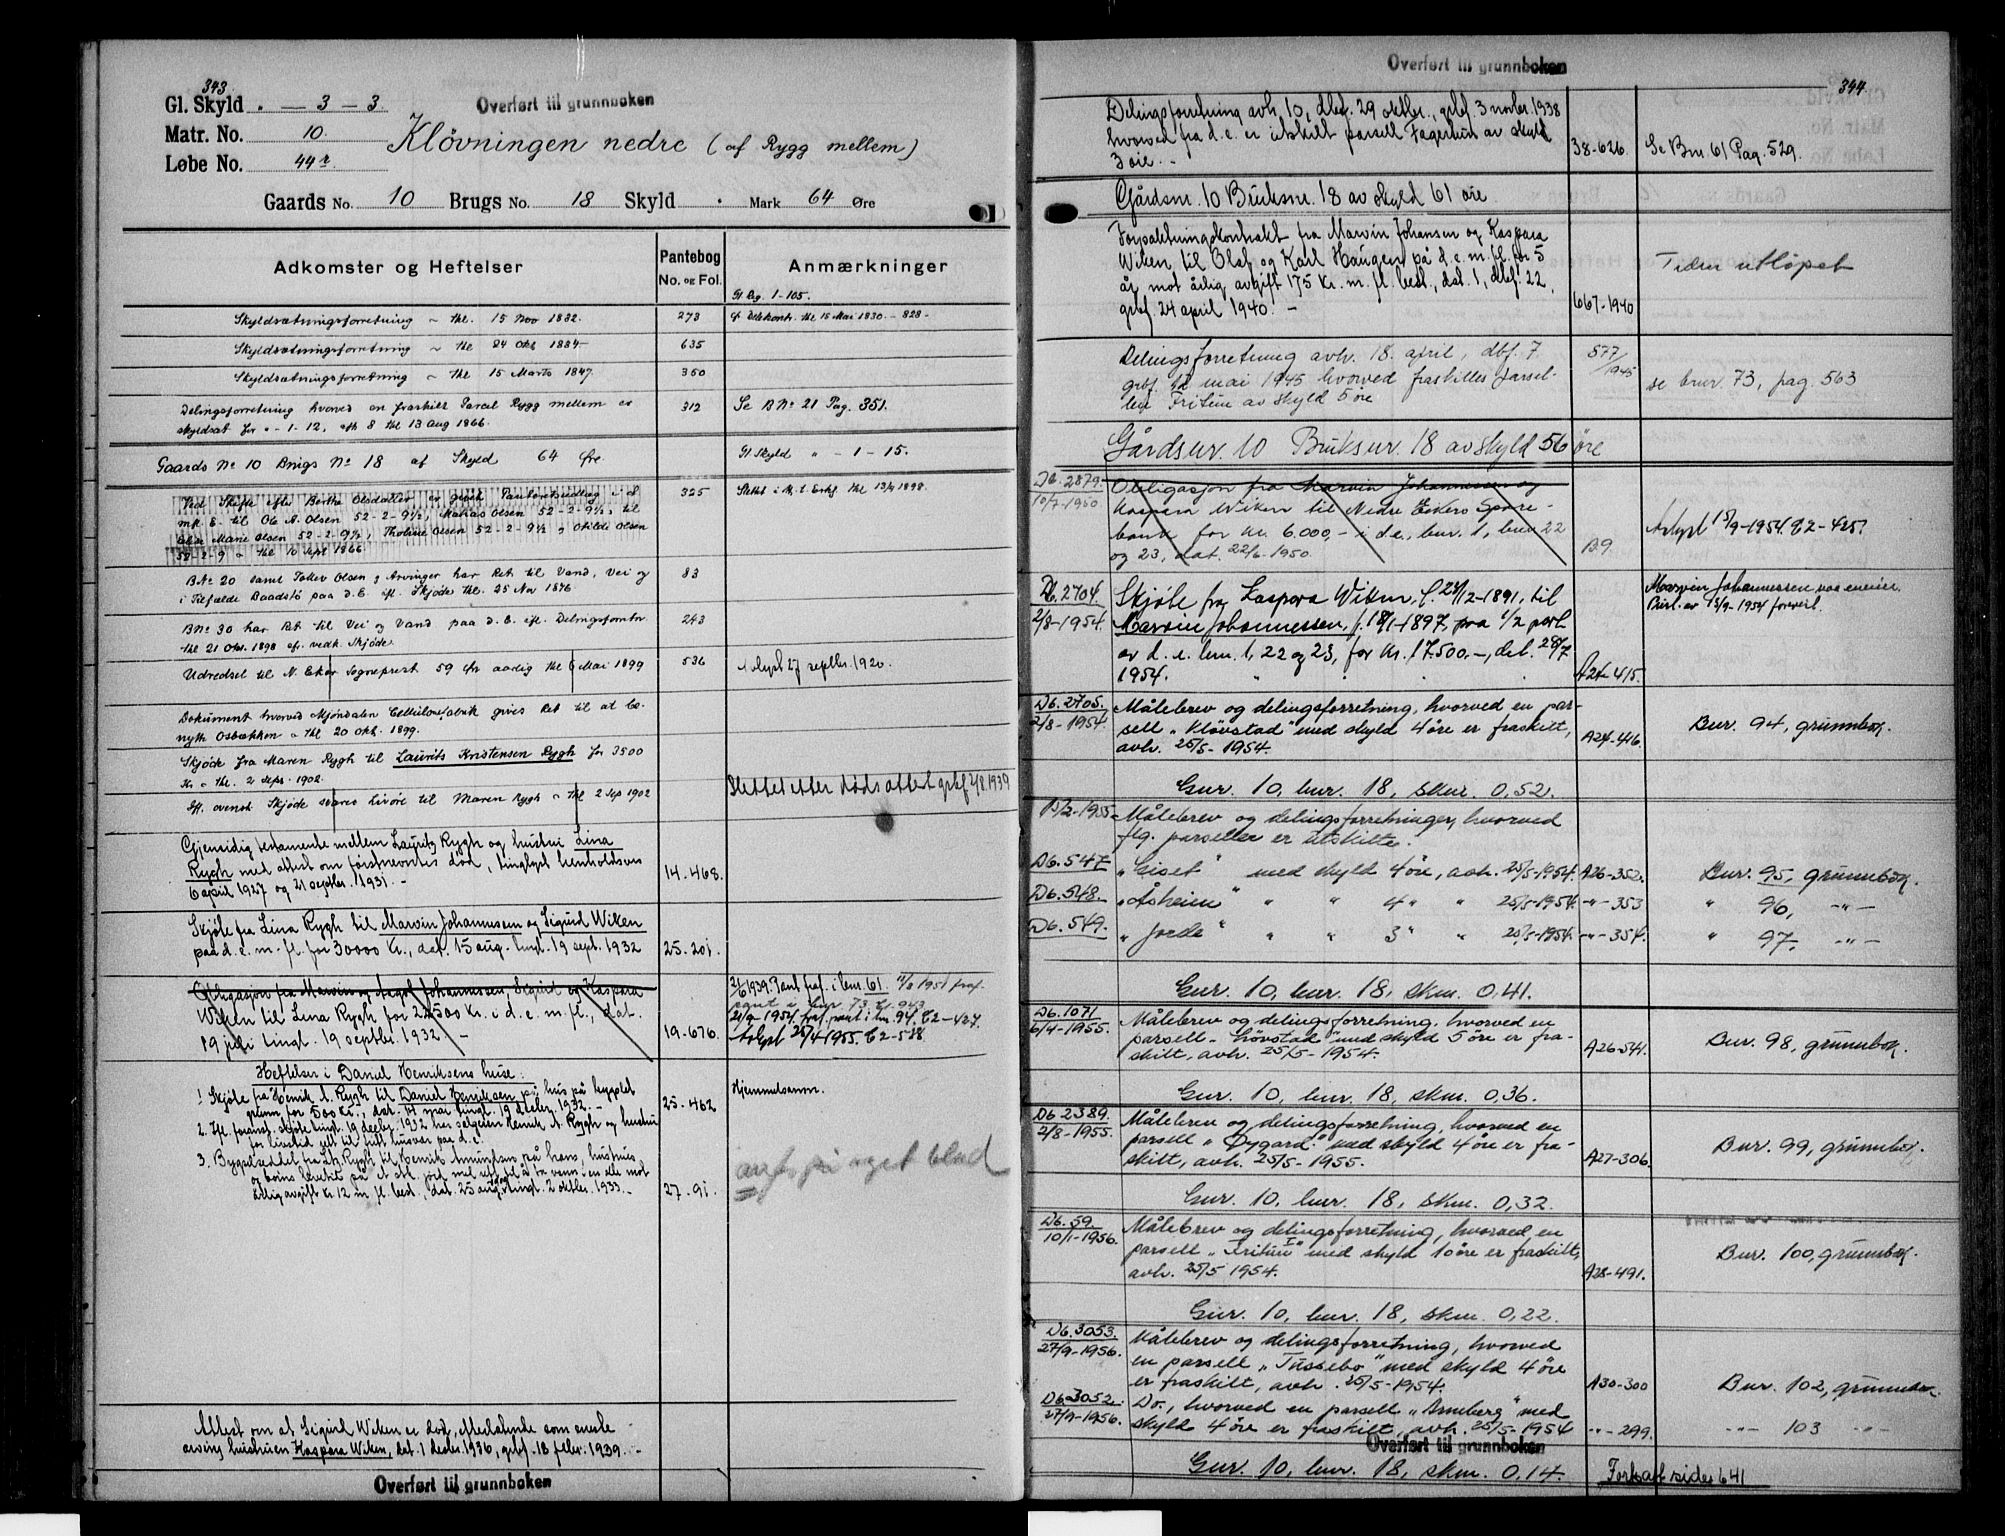 343
Gl. Skyld . — 3 — 3.
Overført til grunnboken
Matr. No. 10.
Kløvningen nedre (af Rygg mellem)
Løbe No. 44
Gaards No. 10 Brugs No. 18 Skyld . Mark 64 Øre
Adkomster og Heftelser
Pantebog No. og Fol.
Anmærkninger
Gl Reg. 1-105.
Skyldsætningsforretning ~ thl. 15 Nov 1832. 273 cf Delekontr. thl 15 Mai 1830. - 828 -
Skyldsætningsforretning ~ thl 24 Okt 1834 635
Skyldsætningsforretning ~ thl 15 Marts 1847. 350
Delingsforretning hvorved en fraskilt Parcel Rygg mellem er 312 Se B No 21 Pag. 351.
skyldsat for " - 1 - 12, afh 8 thl 13 Aug 1866.
Gaards No 10 Brugs No 18 af Skyld 64 Øre. Gl Skyld " - 1 - 15.
Ved Skifte efter Berthe Olsdatter er gjort Panteretsudlæg i d 325
mf. E. til Ole A. Olsen 52-2-9½, Mathias Olsen 52-2-9½, til
Elise Marie Olsen 52-2-9½, Tholine Olsen 52-2-9½, Otilde Olsen
52-2-9 ~ thl 10 Sept 1866.
B No 20 samt Tollev Olsen & Arvinger har Ret til Vand, Vei og 83
i Tilfælde Baadstø paa d. E. ifl. Skjøde thl. 25 Nov 1876
B No 30 har Ret til Vei og Vand paa d. E. ifl. Delingsforretn 243
thl 21 Okt. 1898 cf. vedk. Skjøde
Udredsel til N. Eker Sogneprest 59 Øre aarlig thl 6 Mai 1899 536 Avlyst 27 septbr. 1920.
Dokument hvorved Mjøndalen Cellulosefabrik gives Ret til at be-
nytte Osbækken ~ thl 20 okt. 1899.
Skjøde fra Maren Rygh til Laurits Kristensen Rygh for 3500
Kr ~ thl. 2 Septr. 1902.
Ifl. ovenst Skjøde svares Livøre til Maren Rygh ~ thl 2 Sep 1902 Slettet etter dødsattest grbf 2/8 1939
Gjensidig testamente mellem Laurits Rygh og hustru Lina
Rygh med attest om førstnevntes død, tinglyst henholdsvis 14-468.
6 april 1927 og 21 septbr. 1931. -
Skjøte fra Lina Rygh til Marvin Johannssen og Sigurd Wiken
paa d. e. m. fl. for 30000 Kr., dat. 15 aug. tingl. 19 sept. 1932 25-201.
Obligasjon fra Marvin og Aagot Johannssen, Sigurd og Kaspara
Wiken til Lina Rygh for 22500 Kr. i d. e. m. fl., dat. 19-676.
19 juli tingl. 19 septbr. 1932. -
pant i bnr 73.
21/9 1954 fraf. pant i bnr. 94. C2-427.
Avlyst 25/4 1955. C2-538
Heftelser i Daniel Henriksens huse:
1. Skjøte fra Henrik A. Rygh til Daniel Henriksen på hus på bygslet 25-462 Hjemmelsanm.
grunn for 500 Kr., dat. 14 mai tingl. 19 decbr. 1932. -
2. Ifl. foranst. skjøte tingl. 19 decbr. 1932 har selgeren Henrik A. Rygh og hustru
for livstid rett til fritt husvær paa d. e.
3. Bygselseddel fra Lts. Rygh til Henrik Amundsen på hans, hustrus
og barns levetid på et stk. jord med rett til å ta vann, en alt mot
årlig avgift Kr 12 m fl. best., dat. 25 aug. tingl. 2 oktbr. 1933. - 27-91.
anf. på eget blad
Attest om at Sigurd Wiken er død, etterlatende som eneste
arving hustruen Kaspara Wiken, dat. 1 decbr. 1936, grbf. 18 febr. 1939. -
Overført til grunnboken
Overført til grunnboken
344
Delingsforretning avh. 10, dbf. 29 oktbr., grbf. 3 novbr. 1938
hvorved fra d. e. er utskilt parsell Fagertun av skyld 38-626. Se Bnr. 61 Pag. 529.
3 øre. -
Gårdsnr. 10 Bruksnr. 18 av skyld 61 øre
Forpaktningskontrakt fra Marvin Johansen og Kaspara
Wiken til Olaf og Karl Haugen på d. e. m. fl. for 5 Tiden utløpet
år mot årlig avgift 175 Kr. m. fl. best., dat. 1, dbf. 22,
grbf. 24 april 1940. - 667-1940
Delingsforretning avh. 18. april, dbf. 7 577/1945
grbf. 12 mai 1945 hvorved fraskilles parsel- se bnr. 73, pag. 563
len Fritun av skyld 5 øre
Gårdsnr. 10 Bruksnr. 18 av skyld 56 øre
Db. 2879. Obligasjon fra Marvin Johannessen og
10/7-1950 Kaspara Wiken til Nedre Eikers Spare-
bank for kr. 6.000,- i d.e., bnr. 1, bnr 22 Avlyst 15/9-1954 C2-425.
og 23, dat. 22/6-1950. B9.
Db. 2704 Skjøte fra Kaspara Wiken, f. 24/12-1891, til Marvin Johannessen var eneier.
2/8-1954. Marvin Johannessen, f. 19/1-1897, paa 1/2 part
av d. e. bnr. 1, 22 og 23, for kr. 17.500.-, dat. 28/7
1954. A24-415.
Db. 2705. Målebrev og delingsforretning, hvorved en par-
2/8-1954. sell „Kløvstad" med skyld 4 øre er fraskilt, A24-416. Bnr. 94, grunnbok.
avh. 25/5-1954.
Gnr. 10, bnr. 18, skm. 0,52.
15/2-1955 Målebrev og delingsforretninger, hvorved
flg. parseller er utskilte.
Db. 547 „Giset" med skyld 4 øre, avh. 25/5-1954. A26-352. Bnr. 95, grunnbok.
Db. 548. „Åsheim" " " 4 " " 25/5-1954. -"-353 " 96, -"-
Db. 549. „Jorde" " " 3 " " 25/5-1954. -"-354. " 97. -"-
Gnr. 10, bnr. 18, skm. 0,41.
Db. 1071 Målebrev og delingsforretning, hvorved en
6/4-1955. parsell „Løvstad" med skyld 5 øre er fra- Bnr. 98, grunnbok.
skilt, avh. 25/5-1954. A26-541.
Gnr. 10, bnr. 18, skm. 0,36.
Db 2389. Målebrev og delingsforretning, hvorved en
2/8-1955. parsell „Øygard" med skyld 4 øre er fra- Bnr. 99, grunnbok.
skilt, avh. 25/5-1955. A27-306.
Gnr. 10, bnr. 18, skm. 0,32.
Db. 59 Målebrev og delingsforretning, hvorved en
10/1-1956. parsell „Fritun I" med skyld 10 øre er fraskilt, Bnr. 100, grunnbok.
avh. 25/5 1954. A28-491.
Gnr. 10, bnr. 18, skm. 0,22.
Db. 3053. Målebrev og delingsforretning, hvorved
27/9-1956. en parsell „Tussebo" med skyld 4 øre
er fraskilt, avh. 25/5-1954. A30-300 Bnr. 102, grunnbok.
Db. 3052. Do., hvorved en parsell „Arnberg" med
27/9-1956. skyld 4 øre er fraskilt, avh. 25/5-1954 -"-299. -"- 103 -"-
Overført til grunnboken
Gnr. 10, bnr. 18, skm. 0,14. Forts. side 641